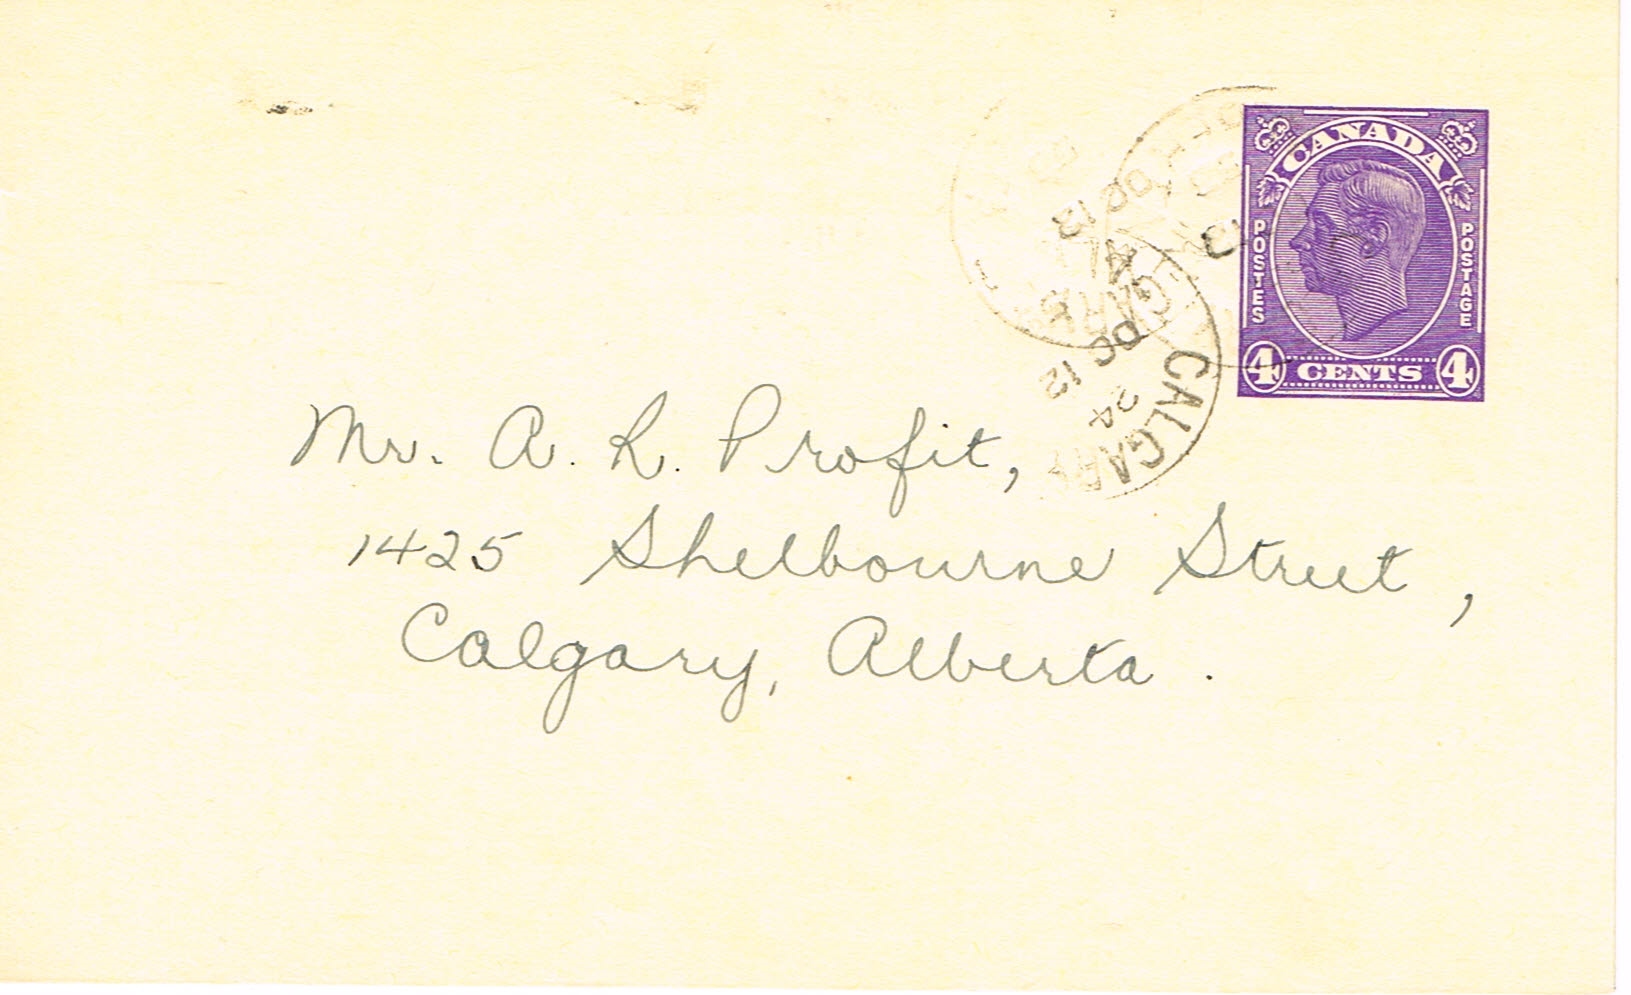 CANADA
POSTES
POSTAGE
4 CENTS 4
CALGARY
DC 12
24
DC 13
4
13
Mr. A. R. Profit,
1425 Shelbourne Street,
Calgary, Alberta.